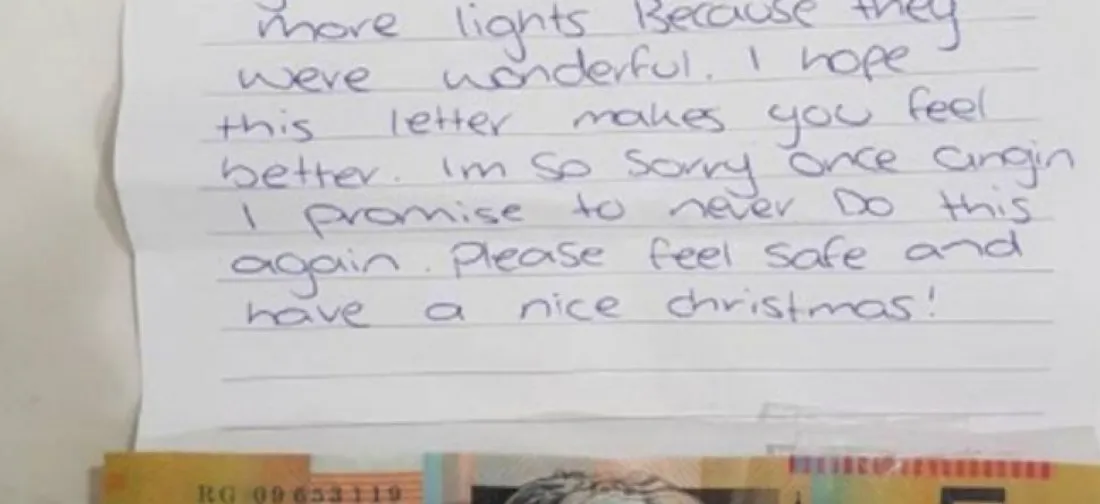 more lights Because they
were wonderful. I hope
this letter makes you feel
better. Im so sorry once angin
I promise to never Do this
again. Please feel safe and
have a nice christmas!
RG 09 653119